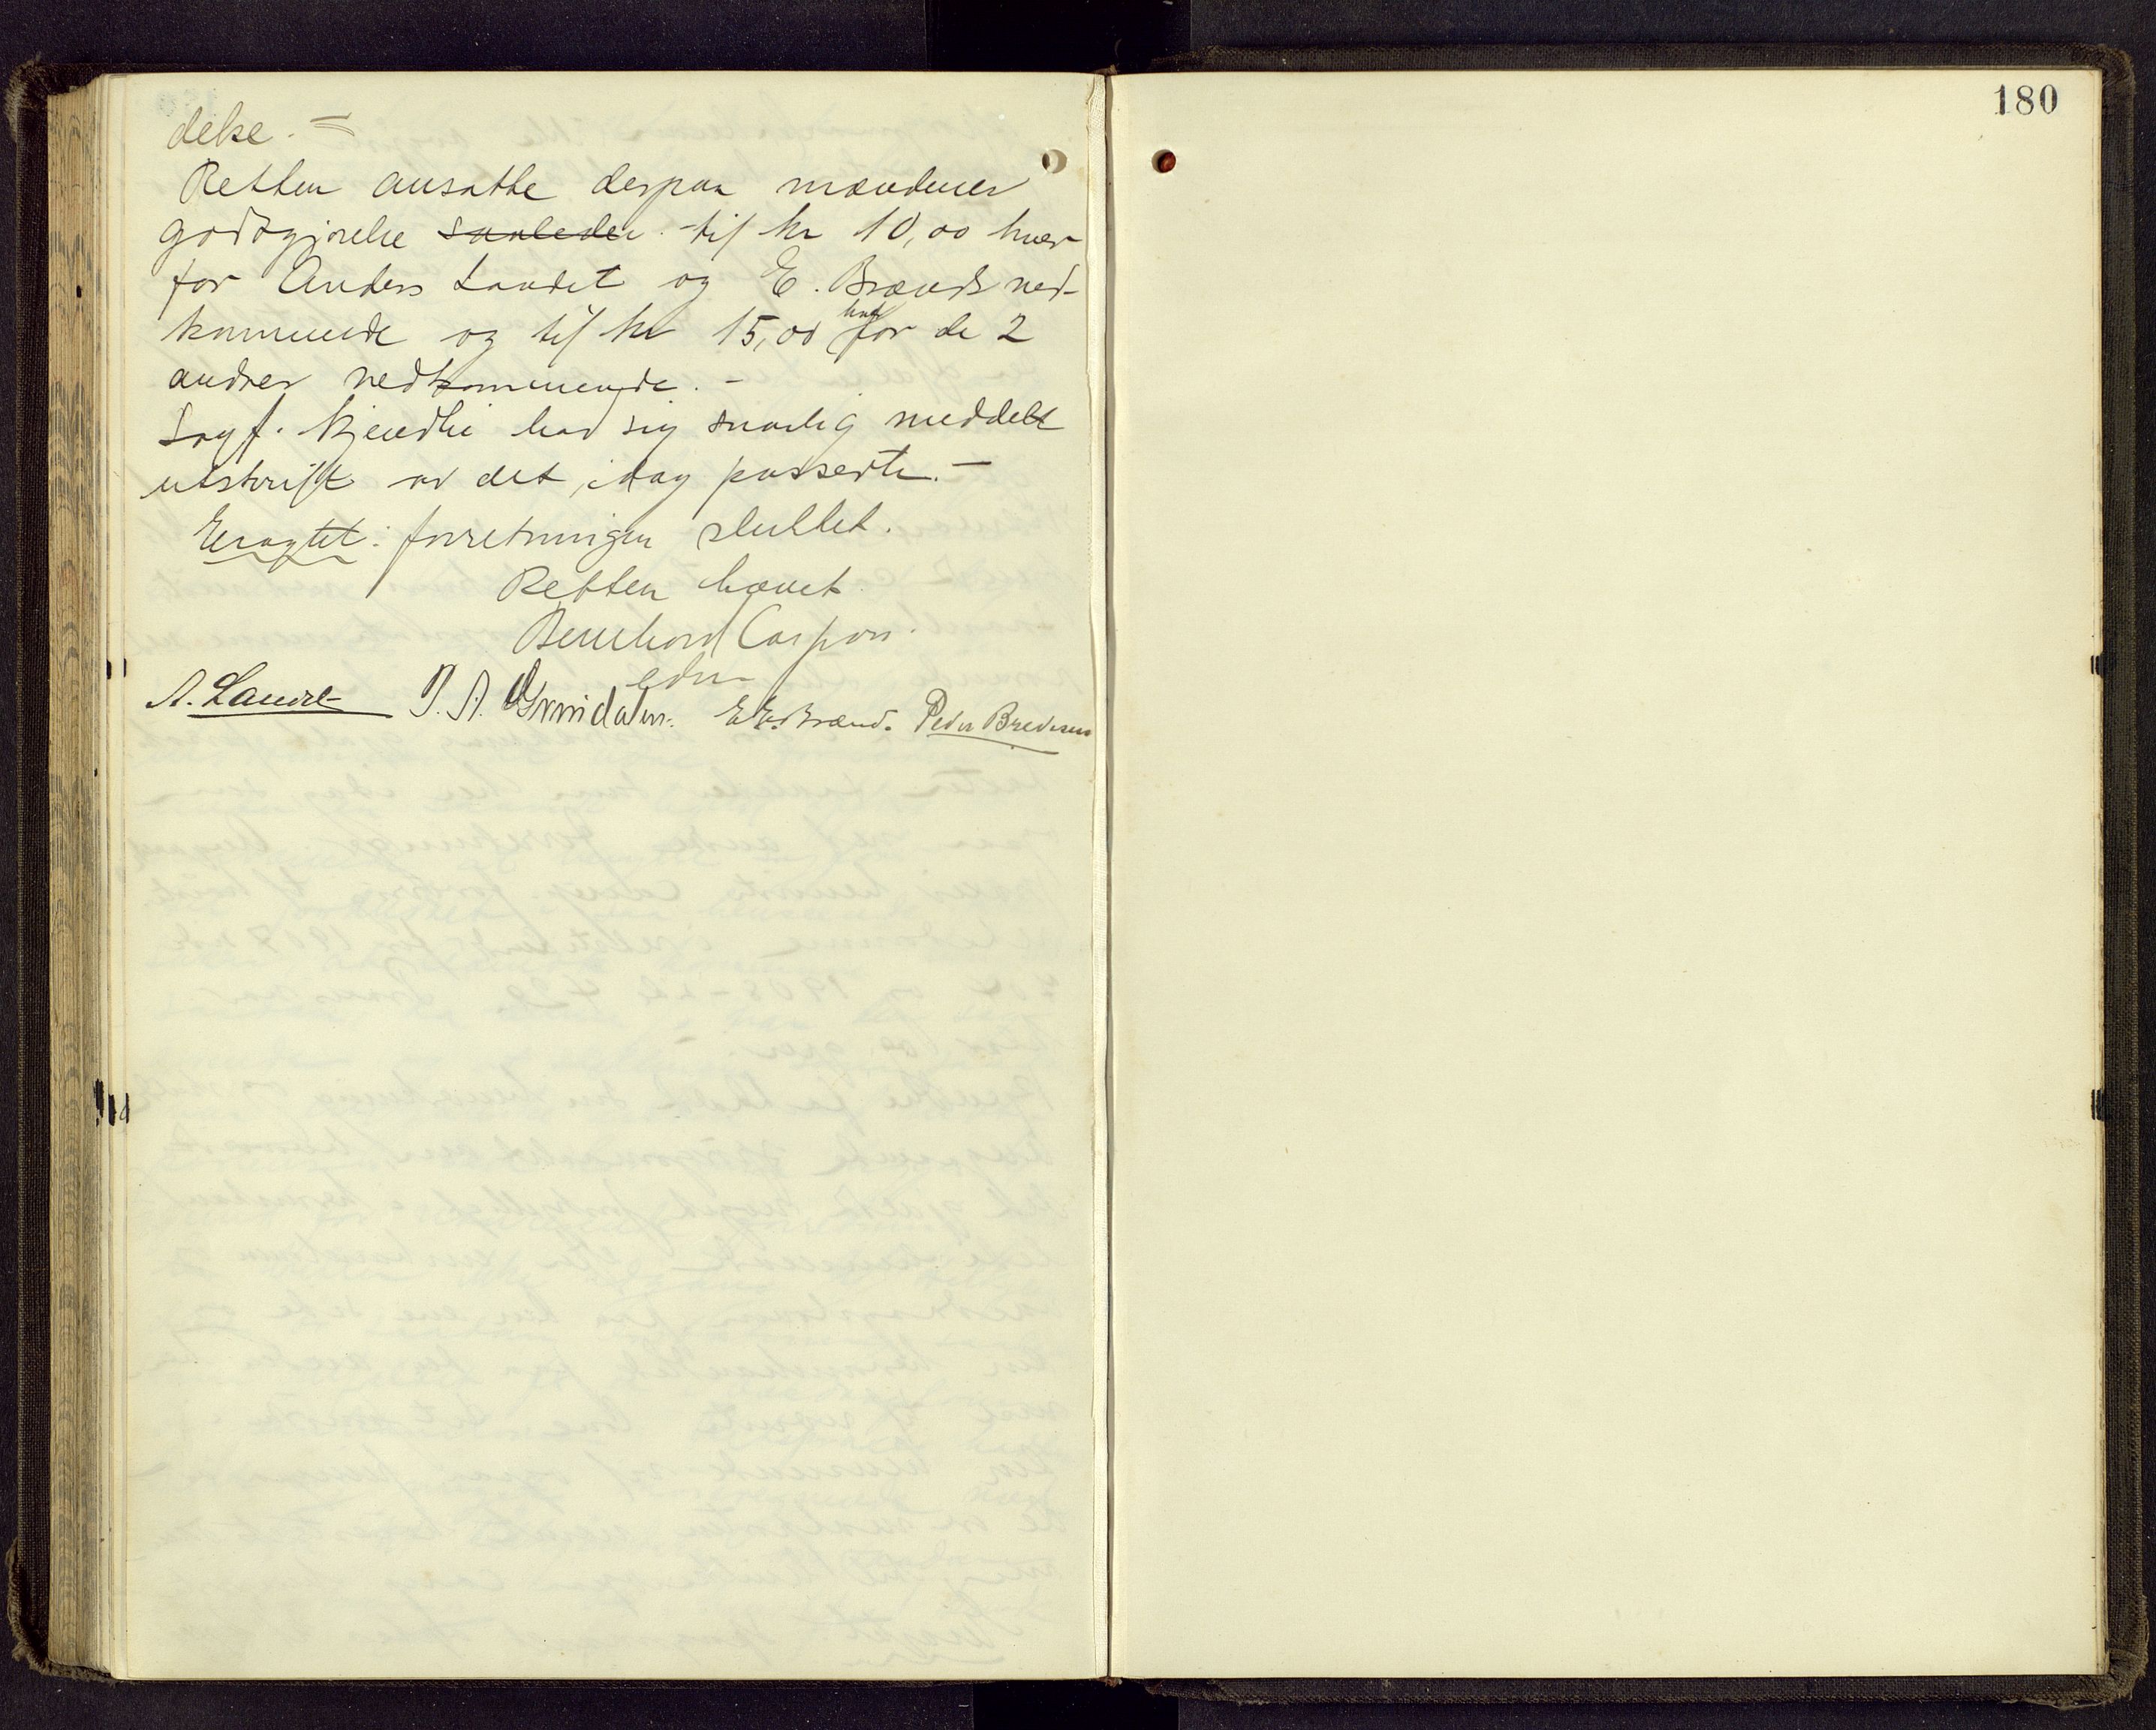 delse. =
Retten ansatte derpaa mændenes
godtgjørelse saaledes til kr 10,00 hver
for Anders Landet og E. Brænds ved-
kommende og til kr 15,00 hver for de 2
andres vedkommende. -
Sagf. Kjendlie bad sig snarlig meddelt
utskrift av det idag passerte. -
Eragtet: forretningen sluttet.
Retten hævet
Bernhard Caspari.
edm
A. Landet P. A. Grindalen. E. E. Brænd. Peder Bredesen
180